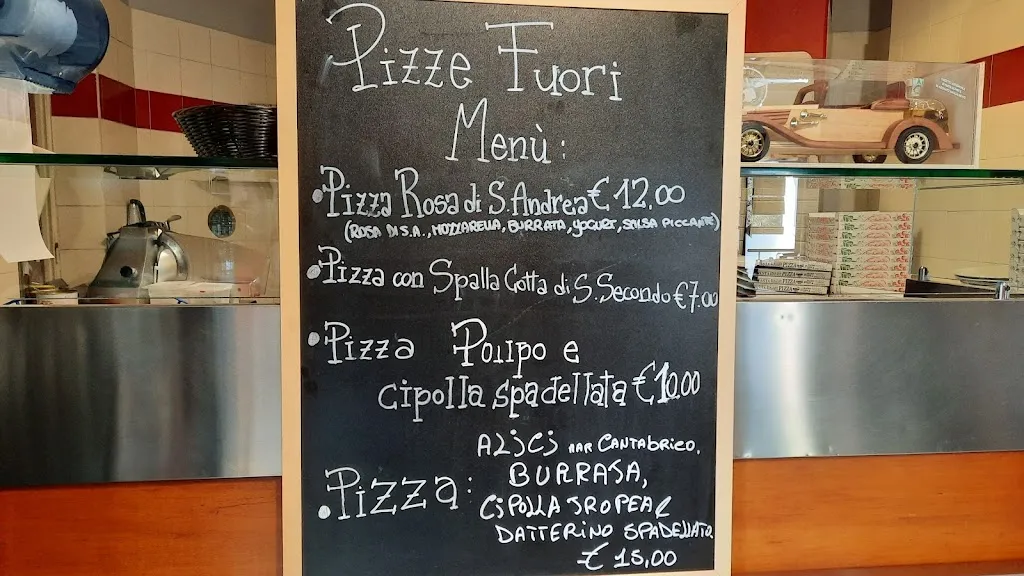 Pizze Fuori
Menù:
•Pizza Rosa di S. Andrea € 12.00
(ROSA DI S.A., MOZZARELLA, BURRATA, YOGURT, SALSA PICCANTE)
•Pizza con Spalla Cotta di S. Secondo € 7.00
•Pizza Polipo e
cipolla spadellata € 10.00
•Pizza: ALICI MAR CANTABRICO,
BURRATA,
CIPOLLA TROPEA E
DATTERINO SPADELLATO.
€ 15,00